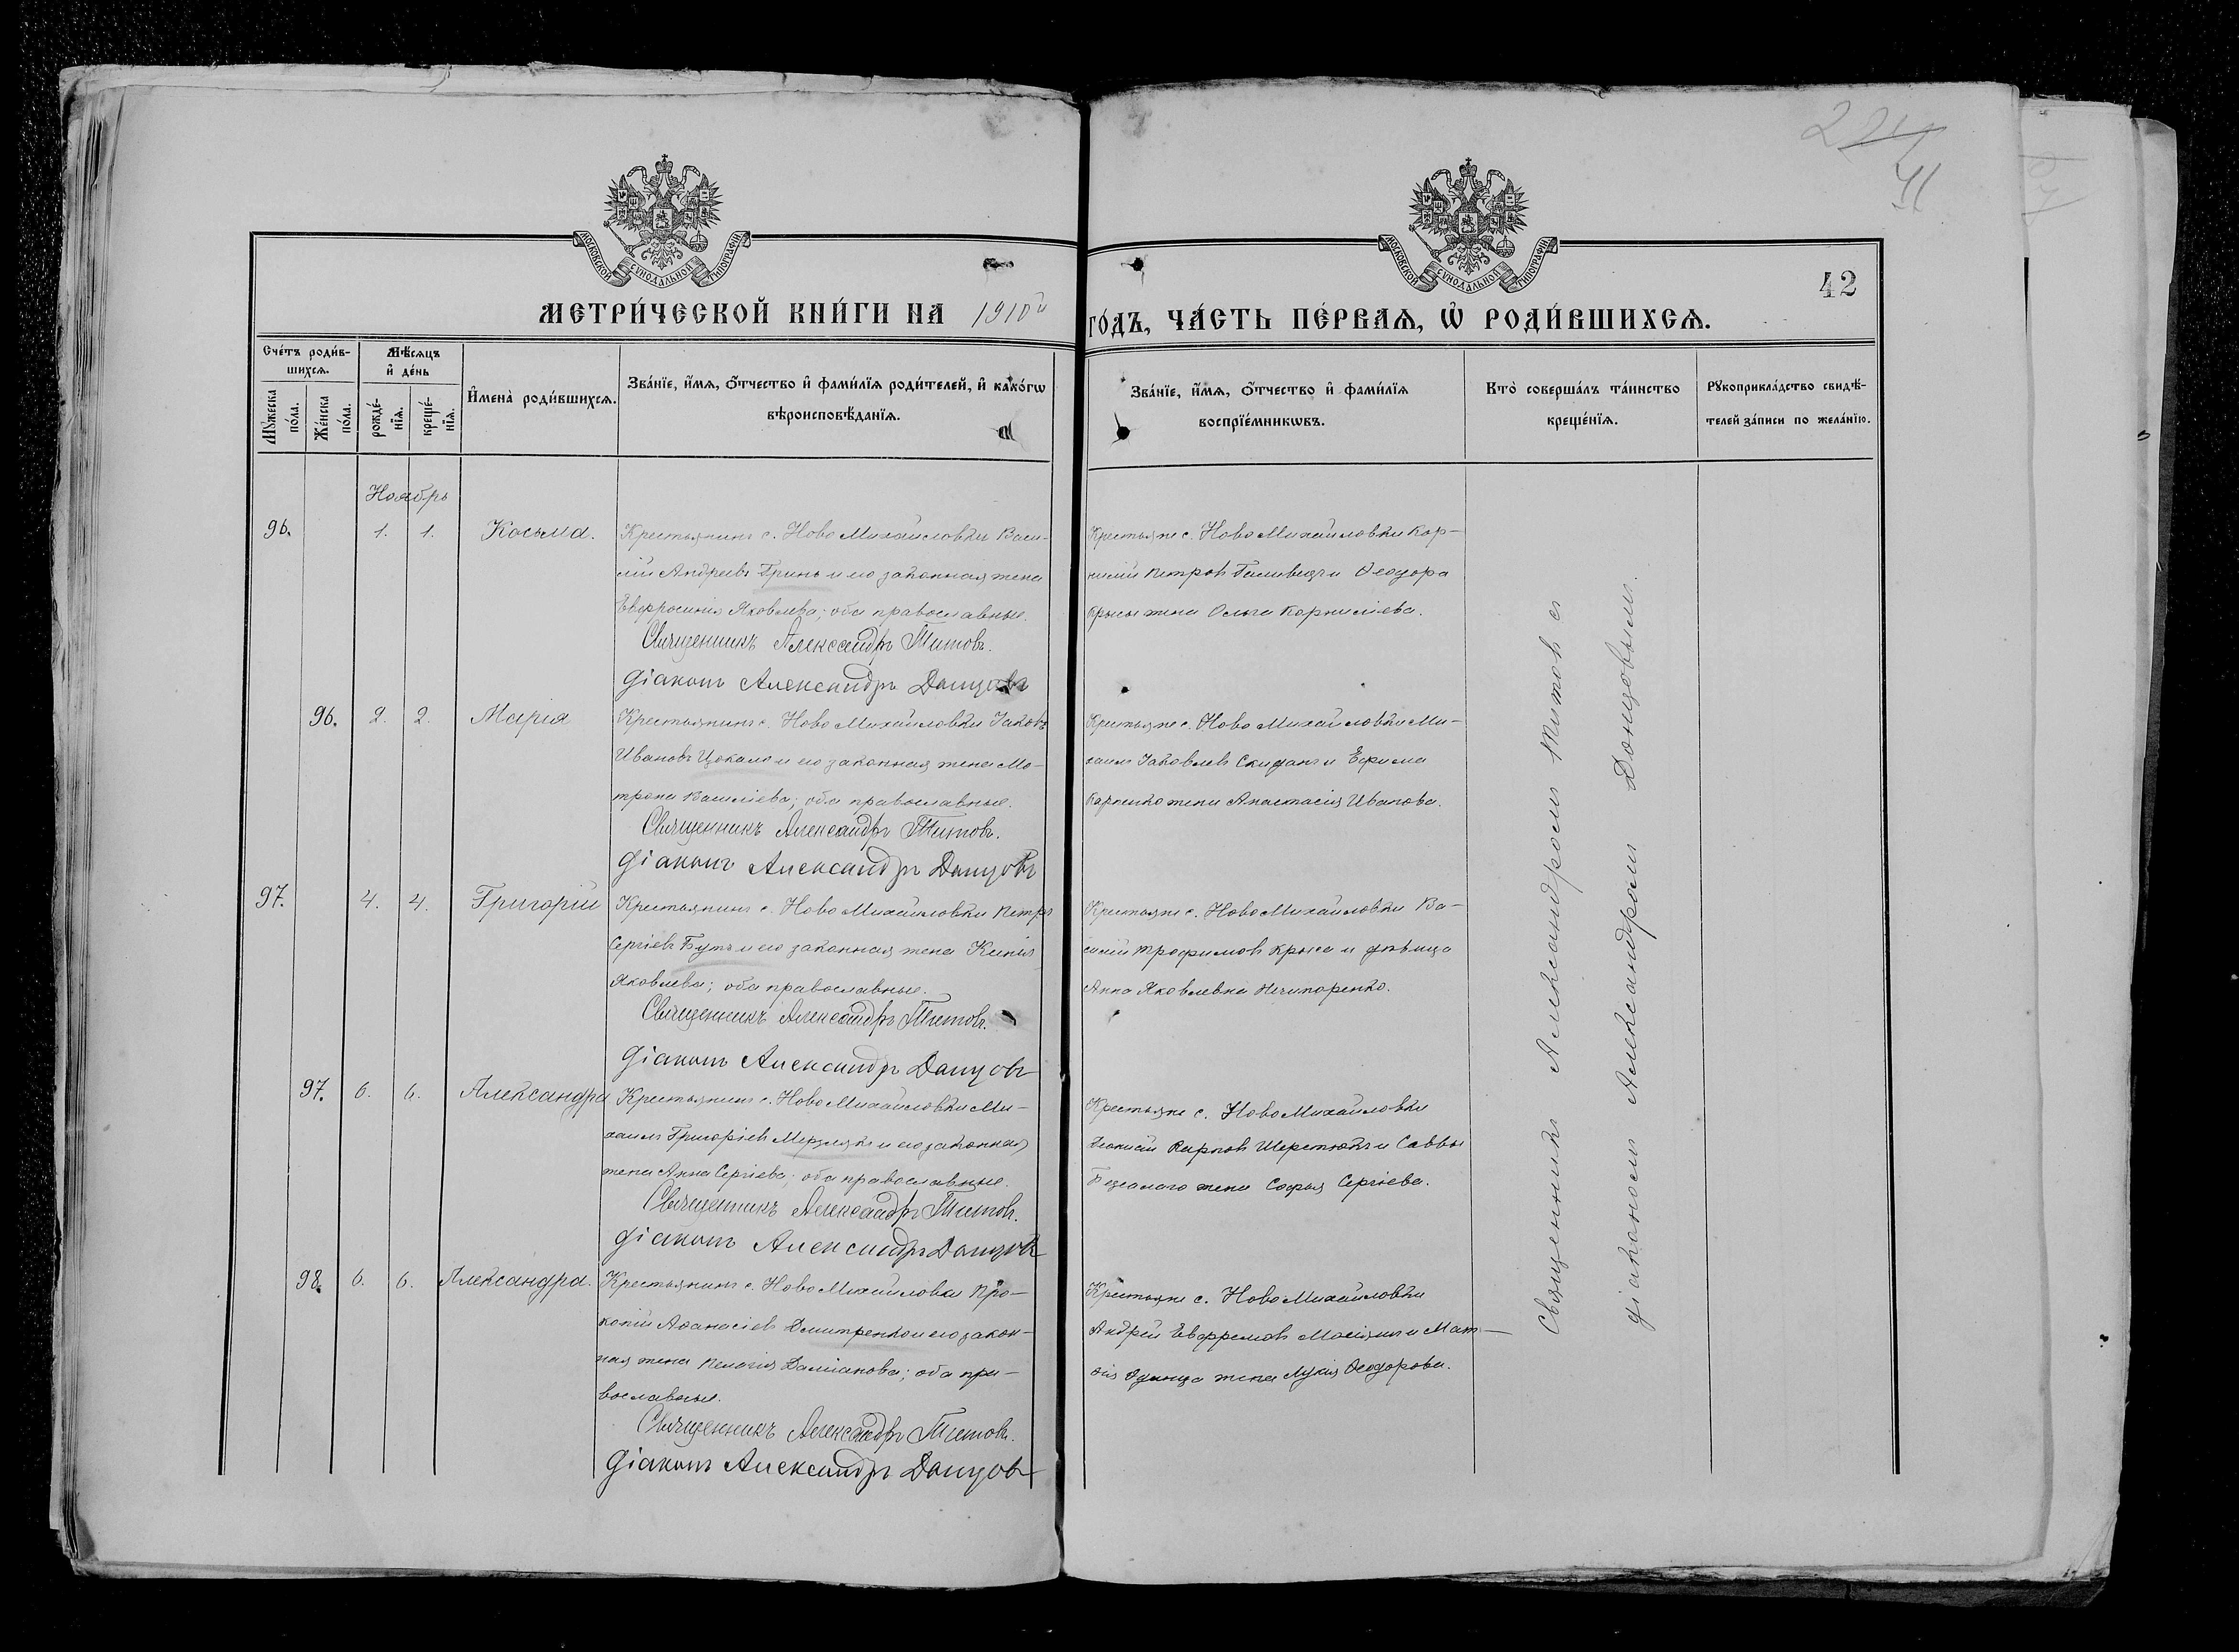 224
41
42
МОСКОВСКОЙ СѴНОДАЛЬНОЙ ТИПОГРАФІИ
МОСКОВСКОЙ СѴНОДАЛЬНОЙ ТИПОГРАФІИ
МЕТРИ́ЧЕСКОЙ КНИ́ГИ НА 1910й
ГО́ДЪ, ЧА́СТЬ ПЕ́РВАѦ, Ѡ҆ РОДИ́ВШИХСѦ.
Сче́тъ роди́в-
шихсѧ.
Мꙋ́жеска по́ла.
Же́нска по́ла.
Мѣ́сѧцъ
и҆ де́нь
рожде́-
нїѧ.
креще́-
нїѧ.
И҆мена̀ роди́вшихсѧ.
Зва́нїе, и҆́мѧ, ѻ҆́тчество и҆ фами́лїѧ роди́телей, и҆ како́гѡ
вѣроисповѣ́данїѧ.
Зва́нїе, и҆́мѧ, ѻ҆́тчество и҆ фами́лїѧ
воспрїе́мникѡвъ.
Кто̀ соверша́лъ та́инство
креще́нїѧ.
Рꙋкоприкла́дство свидѣ́-
телей за́писи по жела́нїю.
Ноябрь
96. 1. 1. Косьма.
Крестьянинъ с. Ново Михайловки Васи-
лій Андреевъ Гринь и его законная жена
Евфросинія Яковлева; оба православные.
Священникъ Александръ Титовъ.
Діаконъ Александръ Донцовъ
Крестьяне с. Ново Михайловки Кор-
нилій Петровъ и Ѳеодора
Крысы жена Ольга Корниліева.
96. 2. 2. Марія
Крестьянинъ с. Ново Михайловки Іаковъ
Ивановъ Цокало и его законная жена Мо-
трона Василіева; оба православные.
Священникъ Александръ Титовъ.
Діаконъ Александръ Донцовъ
Крестьяне с. Ново Михайловки Ми-
хаилъ Іаковлевъ Скиданъ и Ефима
Карпенко жена Анастасія Иванова.
97. 4. 4. Григорій
Крестьянинъ с. Ново Михайловки Петръ
Сергіевъ Бутъ и его законная жена Ксенія
Яковлева; оба православные.
Священникъ Александръ Титовъ.
Діаконъ Александръ Донцовъ
Крестьяне с. Ново Михайловки Ва-
силій Трофимовъ Крыса и дѣвица
Анна Яковлевна Нечипоренко.
97. 6. 6. Александра
Крестьянинъ с. Ново Михайловки Ми-
хаилъ Григоріевъ Мерзлякъ и его законная
жена Анна Сергіева; оба православные.
Священникъ Александръ Титовъ.
Діаконъ Александръ Донцовъ
Крестьяне с. Ново Михайловки
Карповъ Шерстюкъ и Саввы
жена Софья Сергіева.
98. 6. 6. Александра.
Крестьянинъ с. Ново Михайловки Про-
копій Аѳанасіевъ Дмитренко и его закон-
ная жена Пелагія Даміанова; оба пра-
вославные.
Священникъ Александръ Титовъ.
Діаконъ Александръ Донцовъ
Крестьяне с. Ново Михайловки
Андрей Евфремовъ и Мат-
ѳія Одинца жена Лукія Ѳеодорова.
Священникъ Александромъ Титовъ съ
діакономъ Александромъ Донцовымъ.